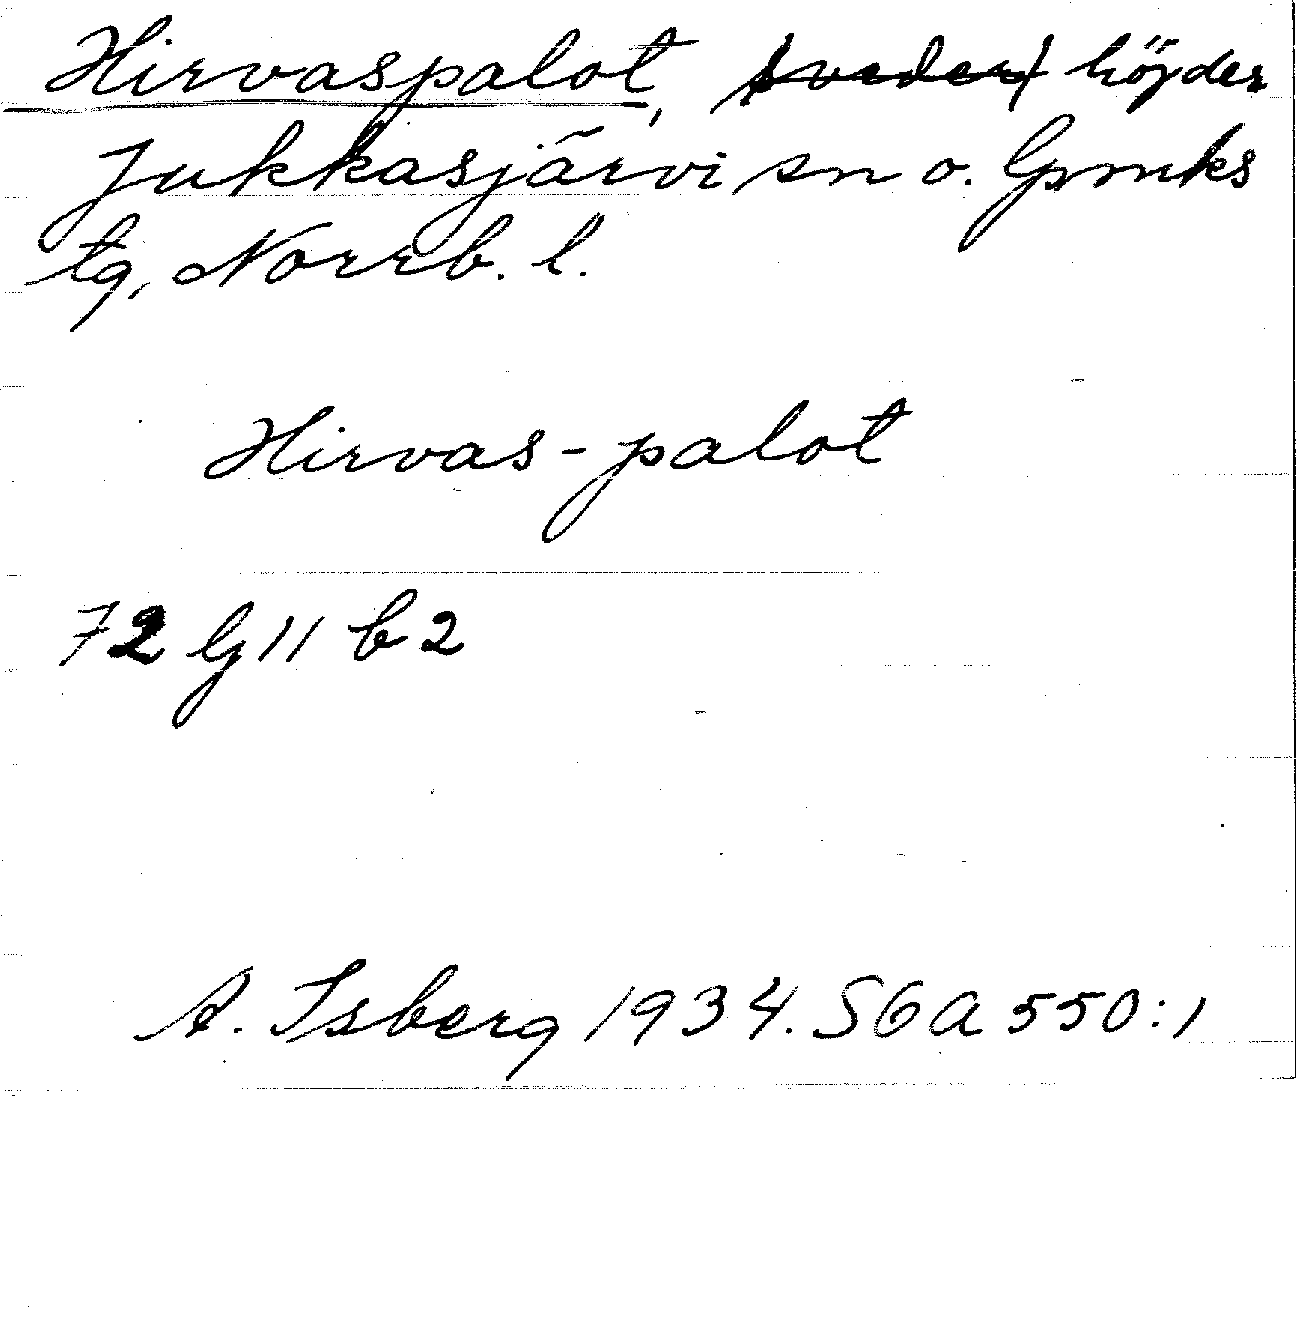 Hirvaspalot, sveder höjder
Jukkasjärvi sn o. Gpmks
tg, Norrb. l.
Hirvas-palot
72 G 11 b 2
A. Isberg 1934. SGA 550:1